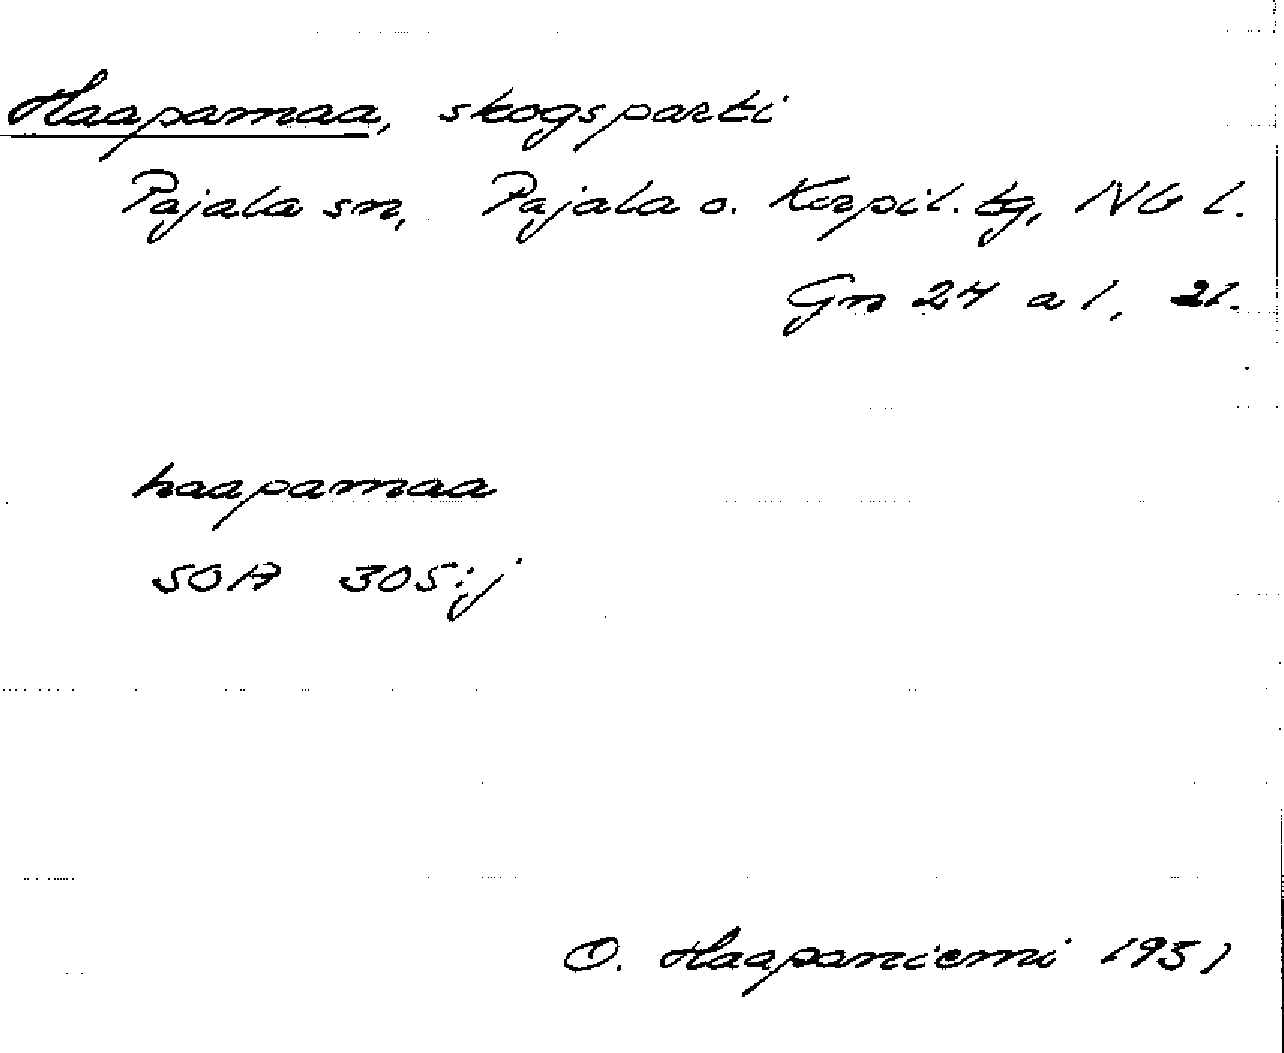 Haapamaa, skogsparti
Pajala sn, Pajala o. Korpil. tg, Nb l.
Gn 24 a 1, 21.
haapamaa
SOA 305:j
O. Haapaniemi 1951